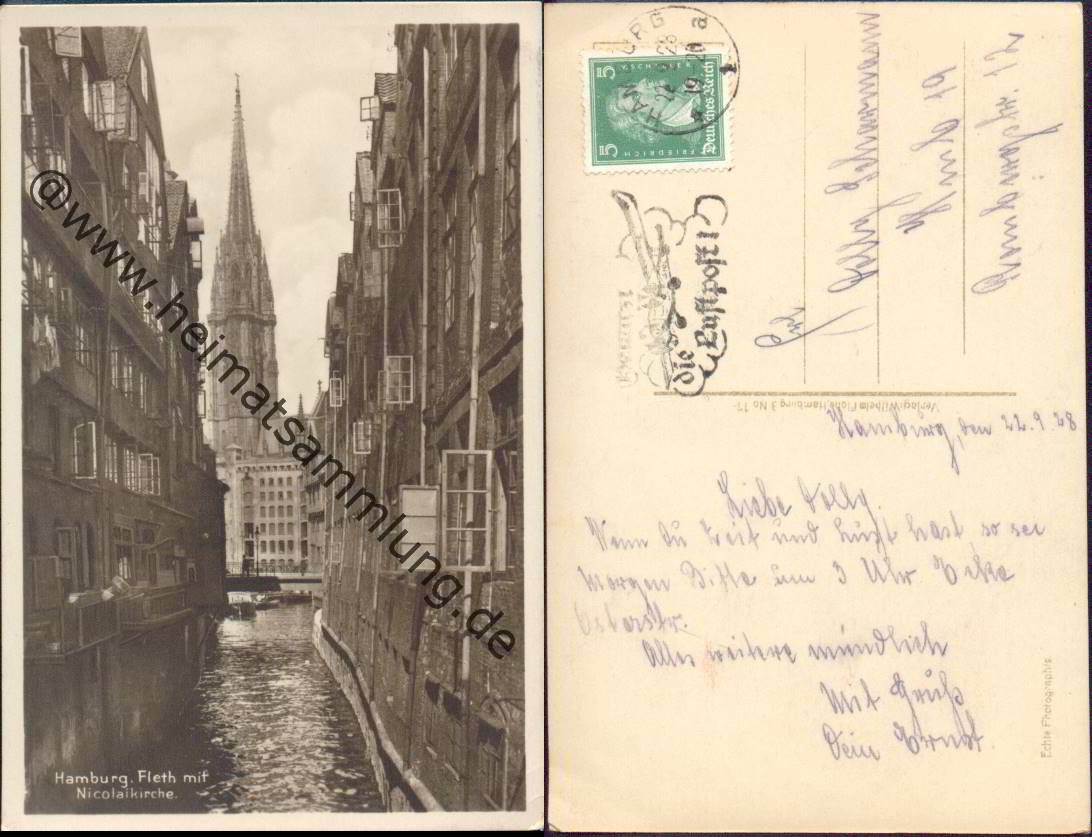 @www.heimatsammlung.de
Hamburg. Fleth mit
Nicolaikirche.
HAMBURG
1
22 9 28
19-20
a
5
5
FRIEDRICH
V. SCHILLER
Deutsches Reich
Benutzt
die
Luftpost!
Frl.
Schürmann
Hmb 19
12
Verlag: Wilhelm Fiohs, Hamburg 3 No 17
Hamburg, den 22.9.28
Liebe Dolly.
Wenn du Zeit und Lust hast, so sei
Morgen Bitte um 3 Uhr Ecke
Osterstr.
Alles weitere mündlich
Mit Gruß
Dein Ernst.
Echte Photographie